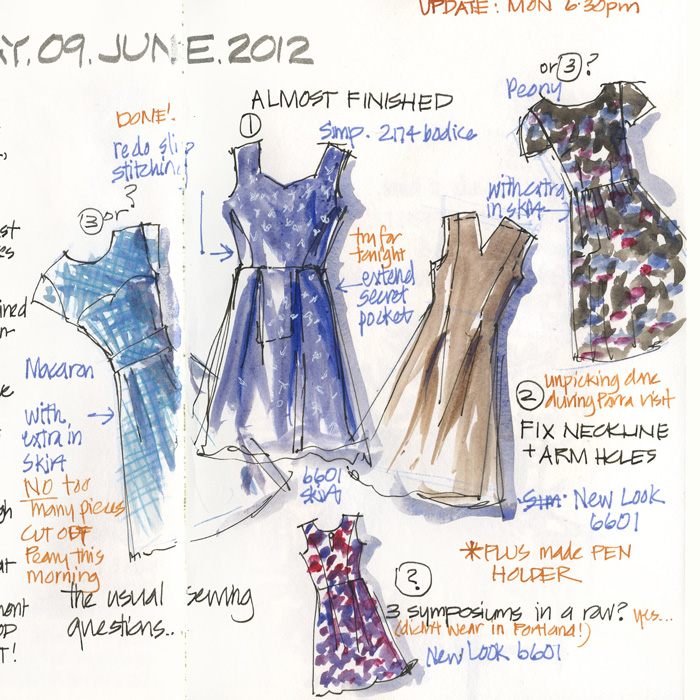 UPDATE: MON 6:30pm
AY. 09. JUNE. 2012
ALMOST FINISHED
①
Simp. 2174 bodice
DONE!
redo slip
stitching
③ or ?
or ③ ?
Peony
with extra
in skirt
try for
tonight
extend
secret
pocket
Macaron
with
extra in
skirt
NO too
many pieces
CUT OFF
Peony this
morning
6601
skirt
② unpicking done
during Parra visit
FIX NECKLINE
+ ARM HOLES
Sim. New Look
6601
*PLUS made PEN
HOLDER
?
3 symposiums in a row? yes...
(didn't wear in Portland!)
New Look 6601
the usual sewing
questions..